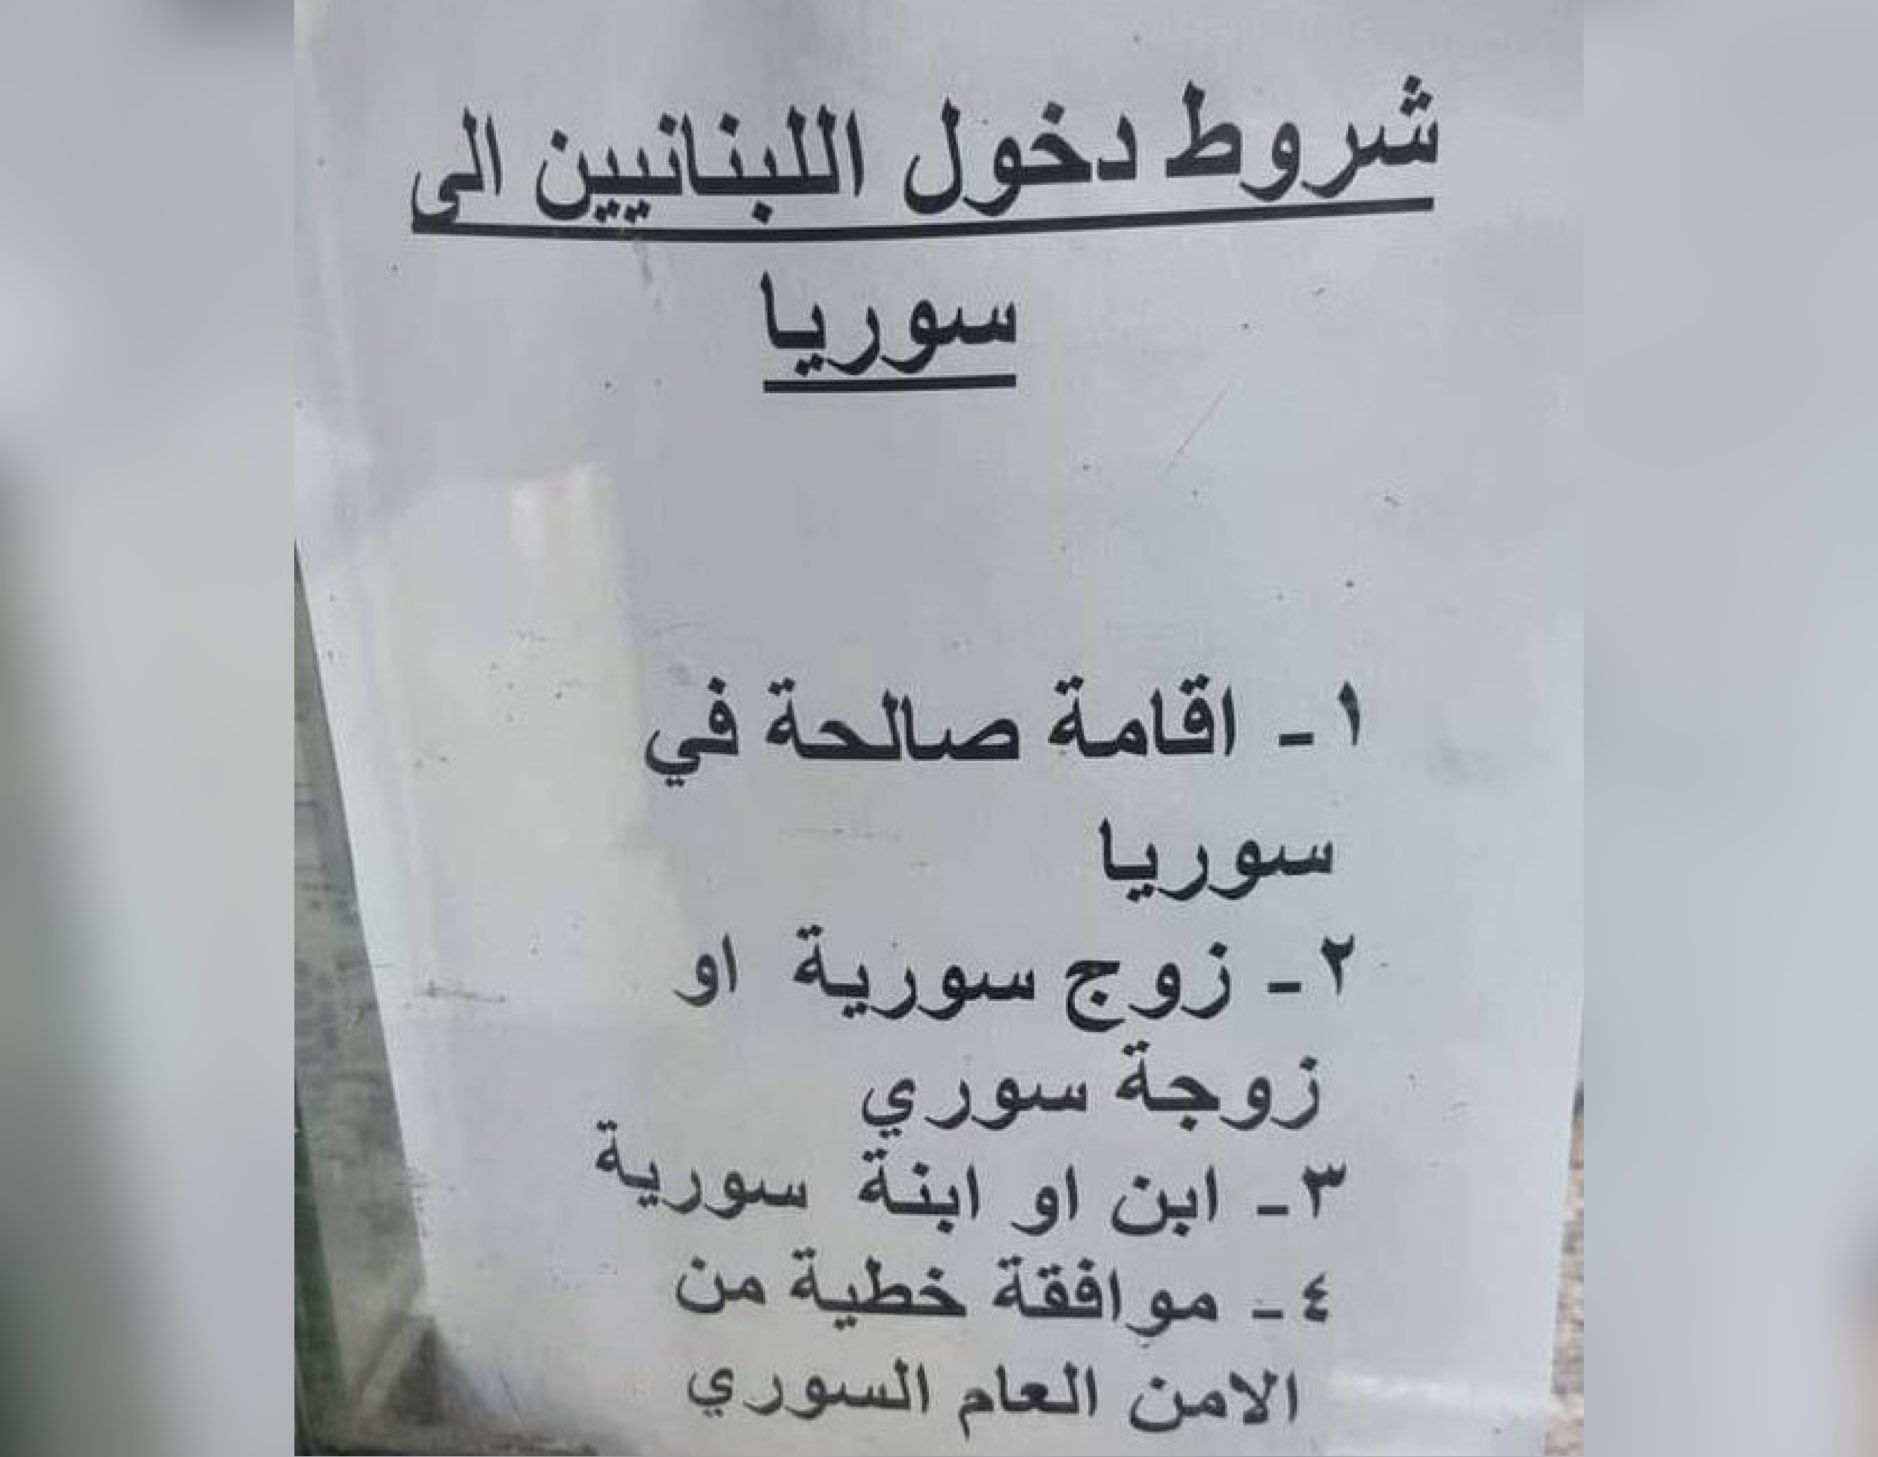 شروط دخول اللبنانيين الى
سوريا
١- اقامة صالحة في
سوريا
٢- زوج سورية او
زوجة سوري
٣- ابن او ابنة سورية
٤- موافقة خطية من
الامن العام السوري